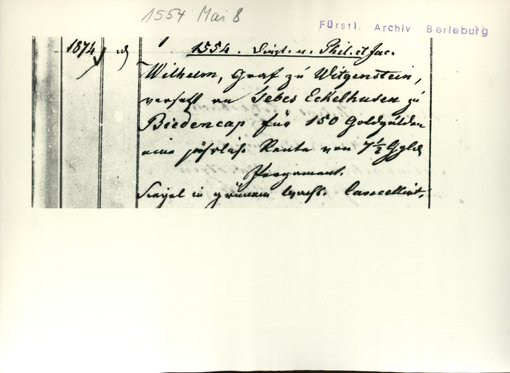 1554 Mai 8
Fürstl. Archiv Berleburg
1874
1554. Dingst. n. Phil. et Jac.
Wilhelm, Graf zu Witgenstein,
versetzt an Eckelhusen zu
Biedencap für 150 Goldgülden
eine jährliche Rente von 7½ Ggld.
Pergament.
Siegel in grünem Wachs. Cancellirt.